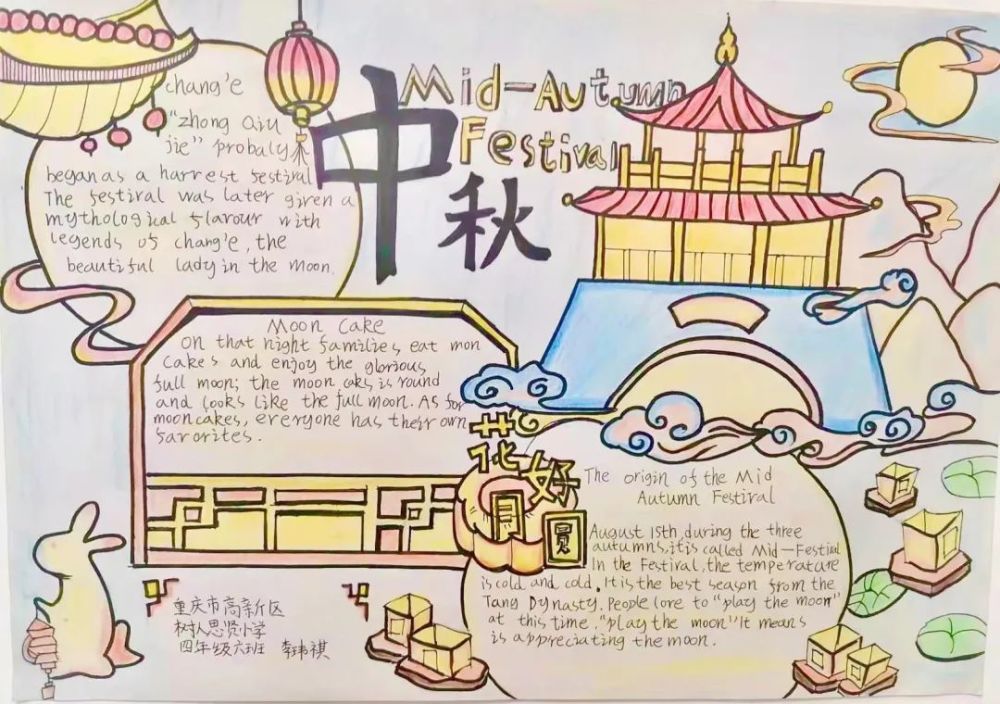 Mid-Autumn
Festival
中
秋
chang'e
"zhong Qiu
jie" probaly
began as a harrest festiral
The festiral was later giren a
mythological flarour with
legends of chang'e, the
beautiful lady in the moon.
Moon Cake
On that night families eat mon
Cakes and enjoy the glorious
full moon; the moon caks is round
and looks like the full moon. As for
mooncakes, everyone has their own
farorites.
花
好
月
圆
The origin of the Mid
Autumn Festiral
August 15th, during the three
autumns, it is called Mid-Festival
In the Festiral, the temperature
is cold and cold, It is the best season from the
Tang Dynasty. People lore to "play the moon"
at this time. "play the moon" It means
is appreciating the moon.
重庆市高新区
树人思贤小学
四年级六班 李玮祺